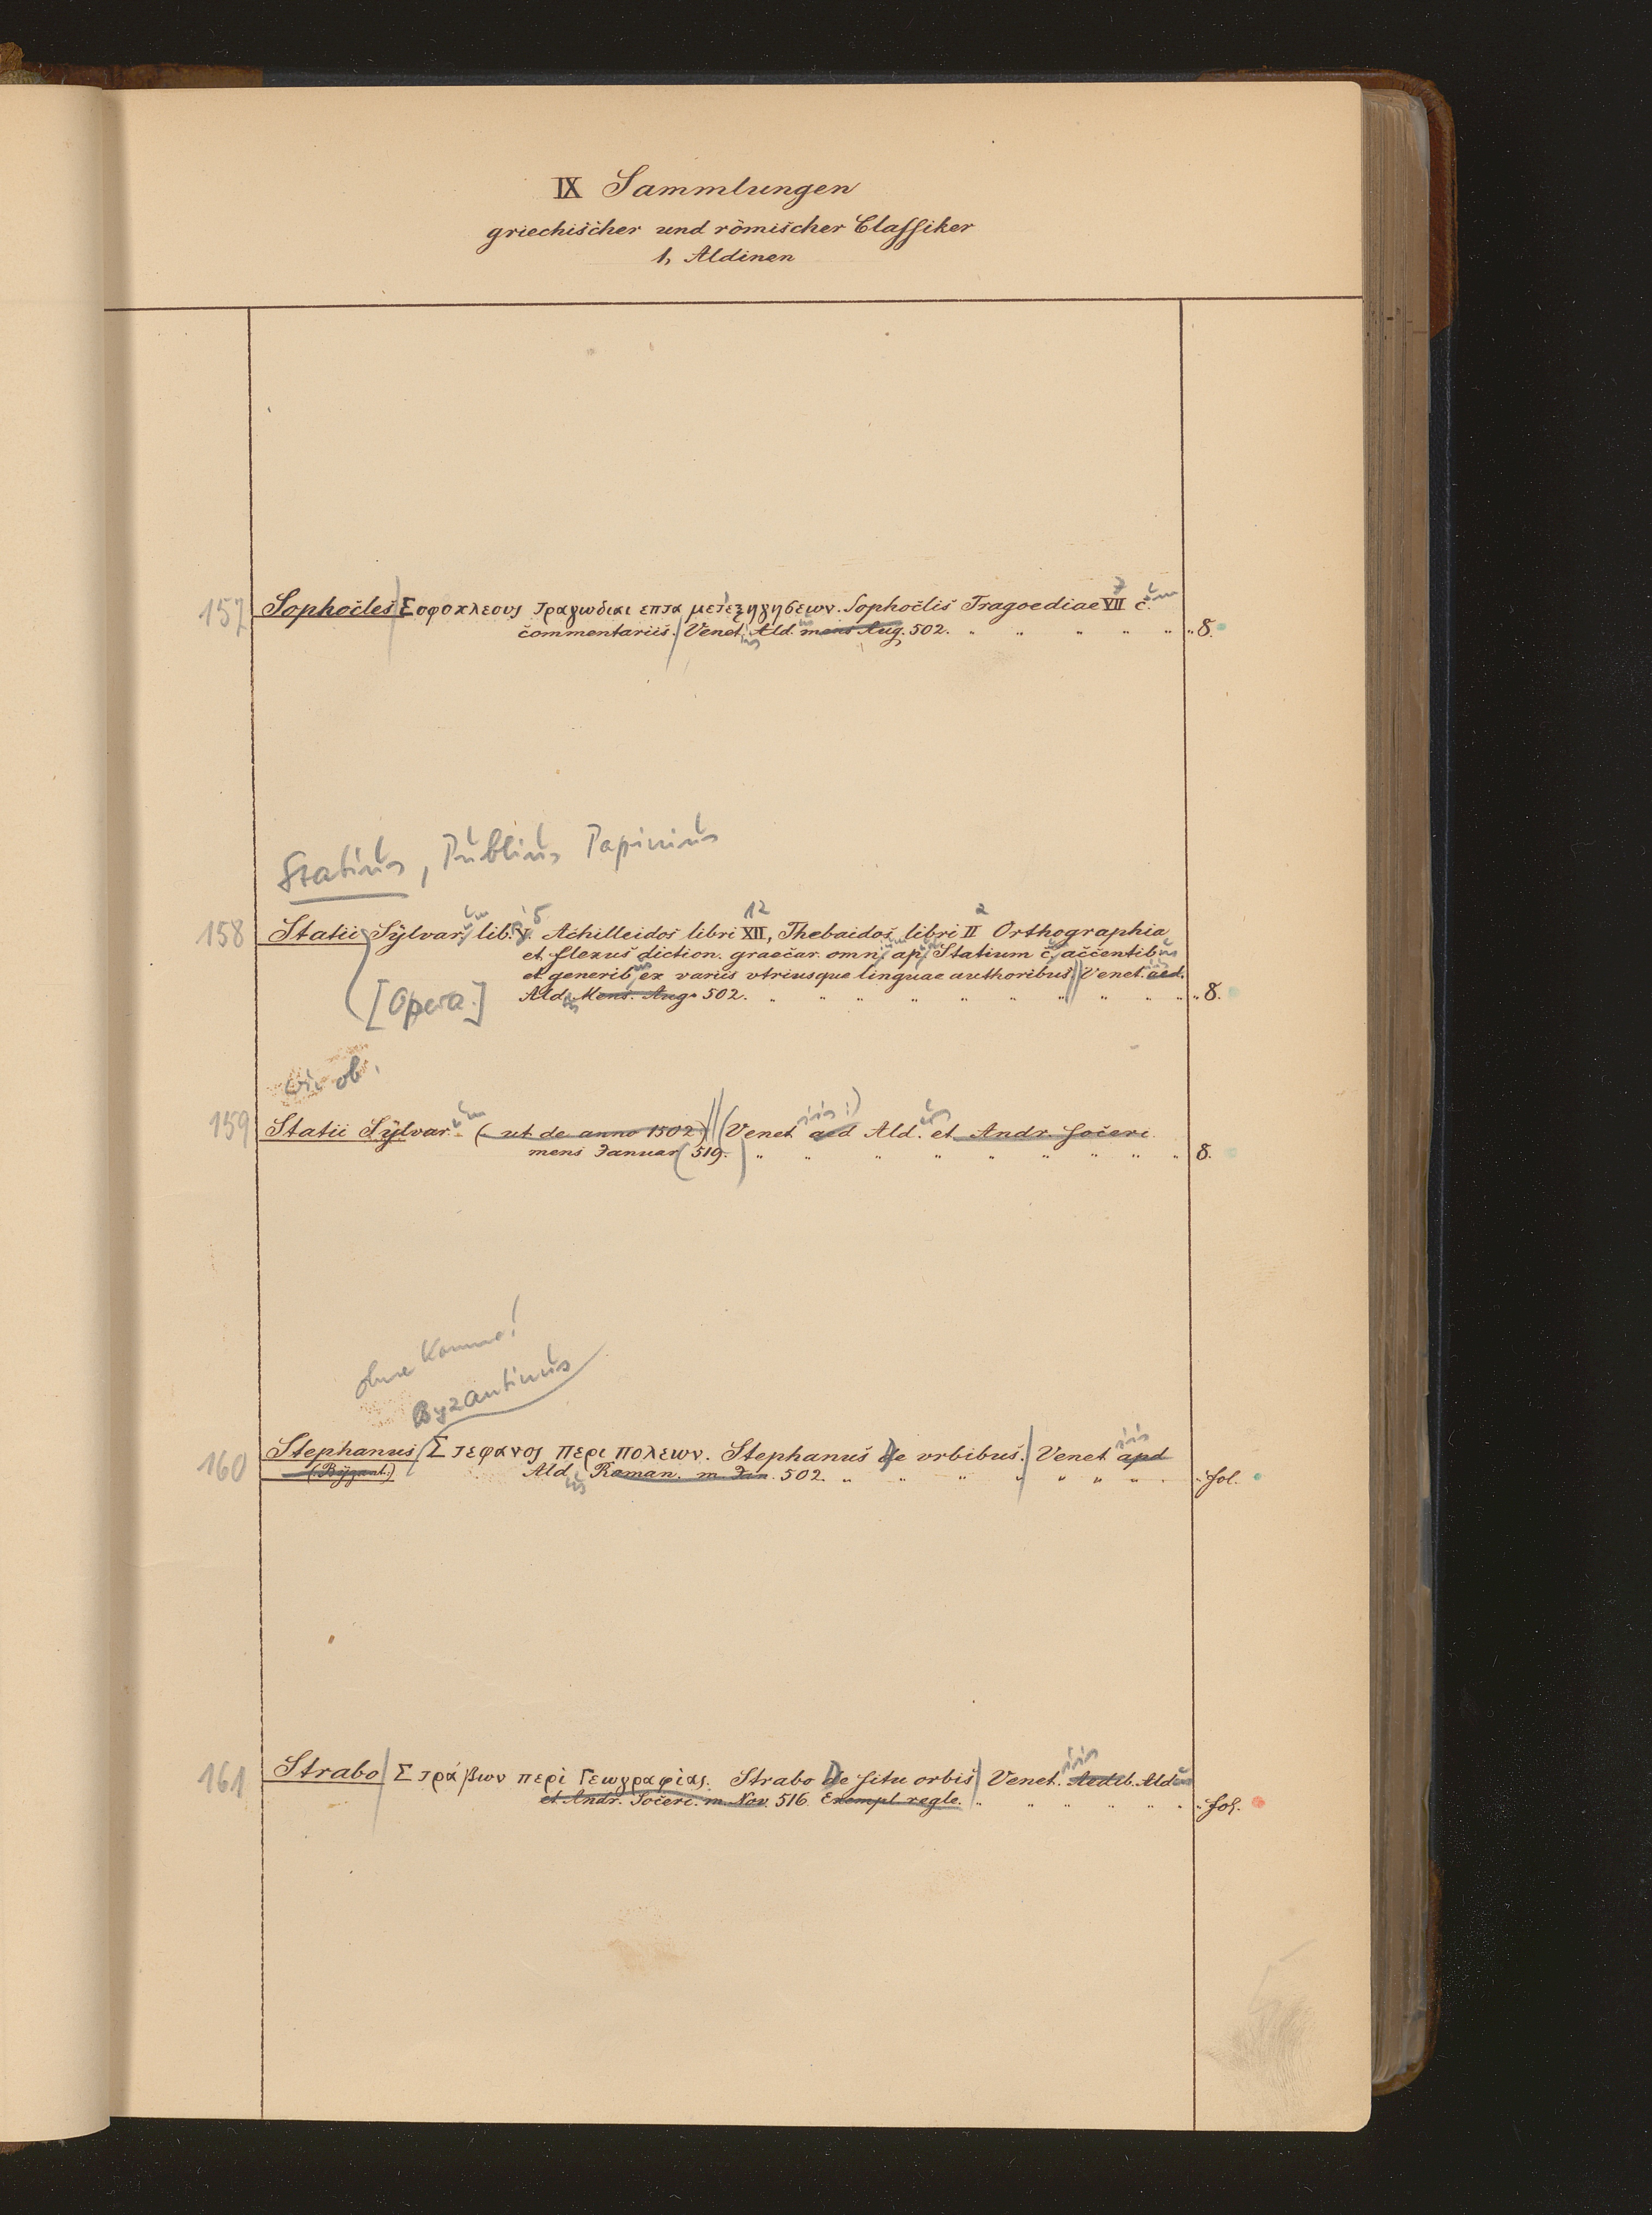 IX Sammlungen
griechischer und römischer Classiker
1, Aldinen
157 Sophocles Σοφοκλεους τραγωδιαι επτα μετ'εξηγησεων. Sophoclis Tragoediae VII 7 c. um
commentariis. Venet. Ald. mens Aug. 502. 8.
Statius, Publius Papinius
158 Statii Sylvar. um lib. V. 5 Achilleidos libri XII, 12 Thebaidos libri II 2 Orthographia
et flexus diction. graecar. omni. ap. Statium c. accentib us
et generib us ex variis vtriusque linguae authoribus Venet. iis aed.
Ald. us Mens. Aug. 502. 8.
[Opera.]
wie ob.
159 Statii Sylvar. um (ut de anno 1502) (Venet iis :) aed Ald. us et Andr. Soceri
mens Januar 519. 8.
ohne Komma!
Byzantinus
160 Stephanus Στεφανος περι πολεων. Stephanus De vrbibus. Venet iis apd
(Byzant.) Ald. us Roman. m. Jan. 502. fol.
161 Strabo Στράβων περὶ Γεωγραφίας. Strabo De situ orbis Venet. iis Aedib. Ald us
et Andr. Soceri. m. Nov. 516. Exempl. regle. fol.